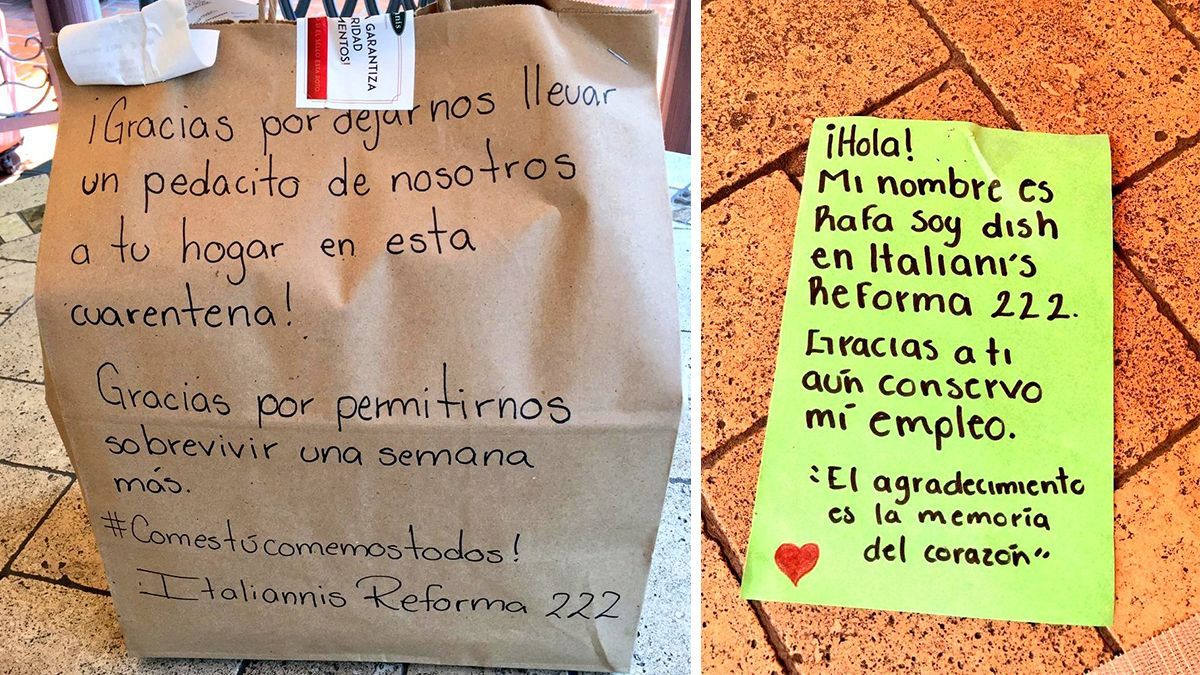 GARANTIZA
RIDAD
MENTOS!
¡Gracias por dejarnos llevar
un pedacito de nosotros
a tu hogar en esta
cuarentena!
Gracias por permitirnos
sobrevivir una semana
más.
#Comestúcomemostodos!
Italiannis Reforma 222
¡Hola!
Mi nombre es
Rafa soy dish
en Italiani's
Reforma 222.
Gracias a ti
aún conservo
mi empleo.
"El agradecimiento
es la memoria
del corazón"